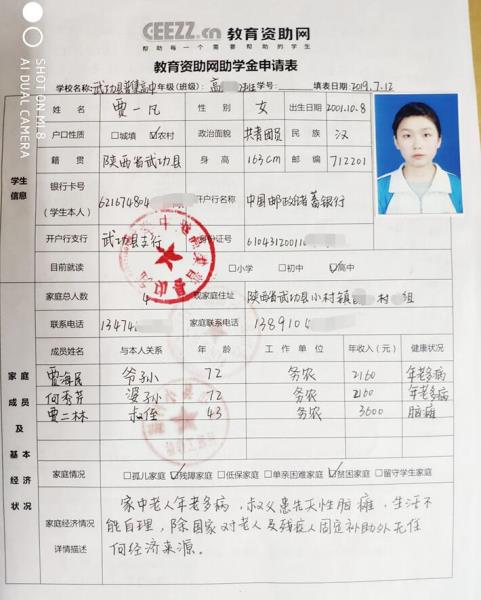 CEEZZ.cn 教育资助网
帮助每一个需要帮助的学生
教育资助网助学金申请表
学校名称:武功县普集高中 年级(班级): 高 班 学号: 填表日期:2019.7.12
姓名 贾一凡 性别 女 出生日期 2001.10.8
户口性质 □城镇 ☑农村 政治面貌 共青团员 民族 汉
籍贯 陕西省武功县 身高 163cm 邮编 712201
学生信息
银行卡号
(学生本人) 621674804 开户行名称 中国邮政储蓄银行
开户行支行 武功县支行 身份证号 610431200110
目前就读 □小学 □初中 ☑高中
家庭总人数 4 现家庭住址 陕西省武功县小村镇 村 组
联系电话 13474 家庭联系电话 138910
成员姓名 与本人关系 年龄 工作单位 年收入(元) 健康状况
家庭成员及基本经济状况
贾海民 爷孙 72 务农 2160 年老多病
何秀芹 婆孙 72 务农 2160 年老多病
贾二林 叔侄 43 务农 3600 脑瘫
家庭情况 □孤儿家庭 ☑残障家庭 □低保家庭 □单亲困难家庭 ☑贫困家庭 □留守学生家庭
家庭经济情况
详情描述
家中老人年老多病,叔父患先天性脑瘫,生活不
能自理,除国家对老人及残疾人固定补助外无任
何经济来源。
SHOT ON MI 8
AI DUAL CAMERA